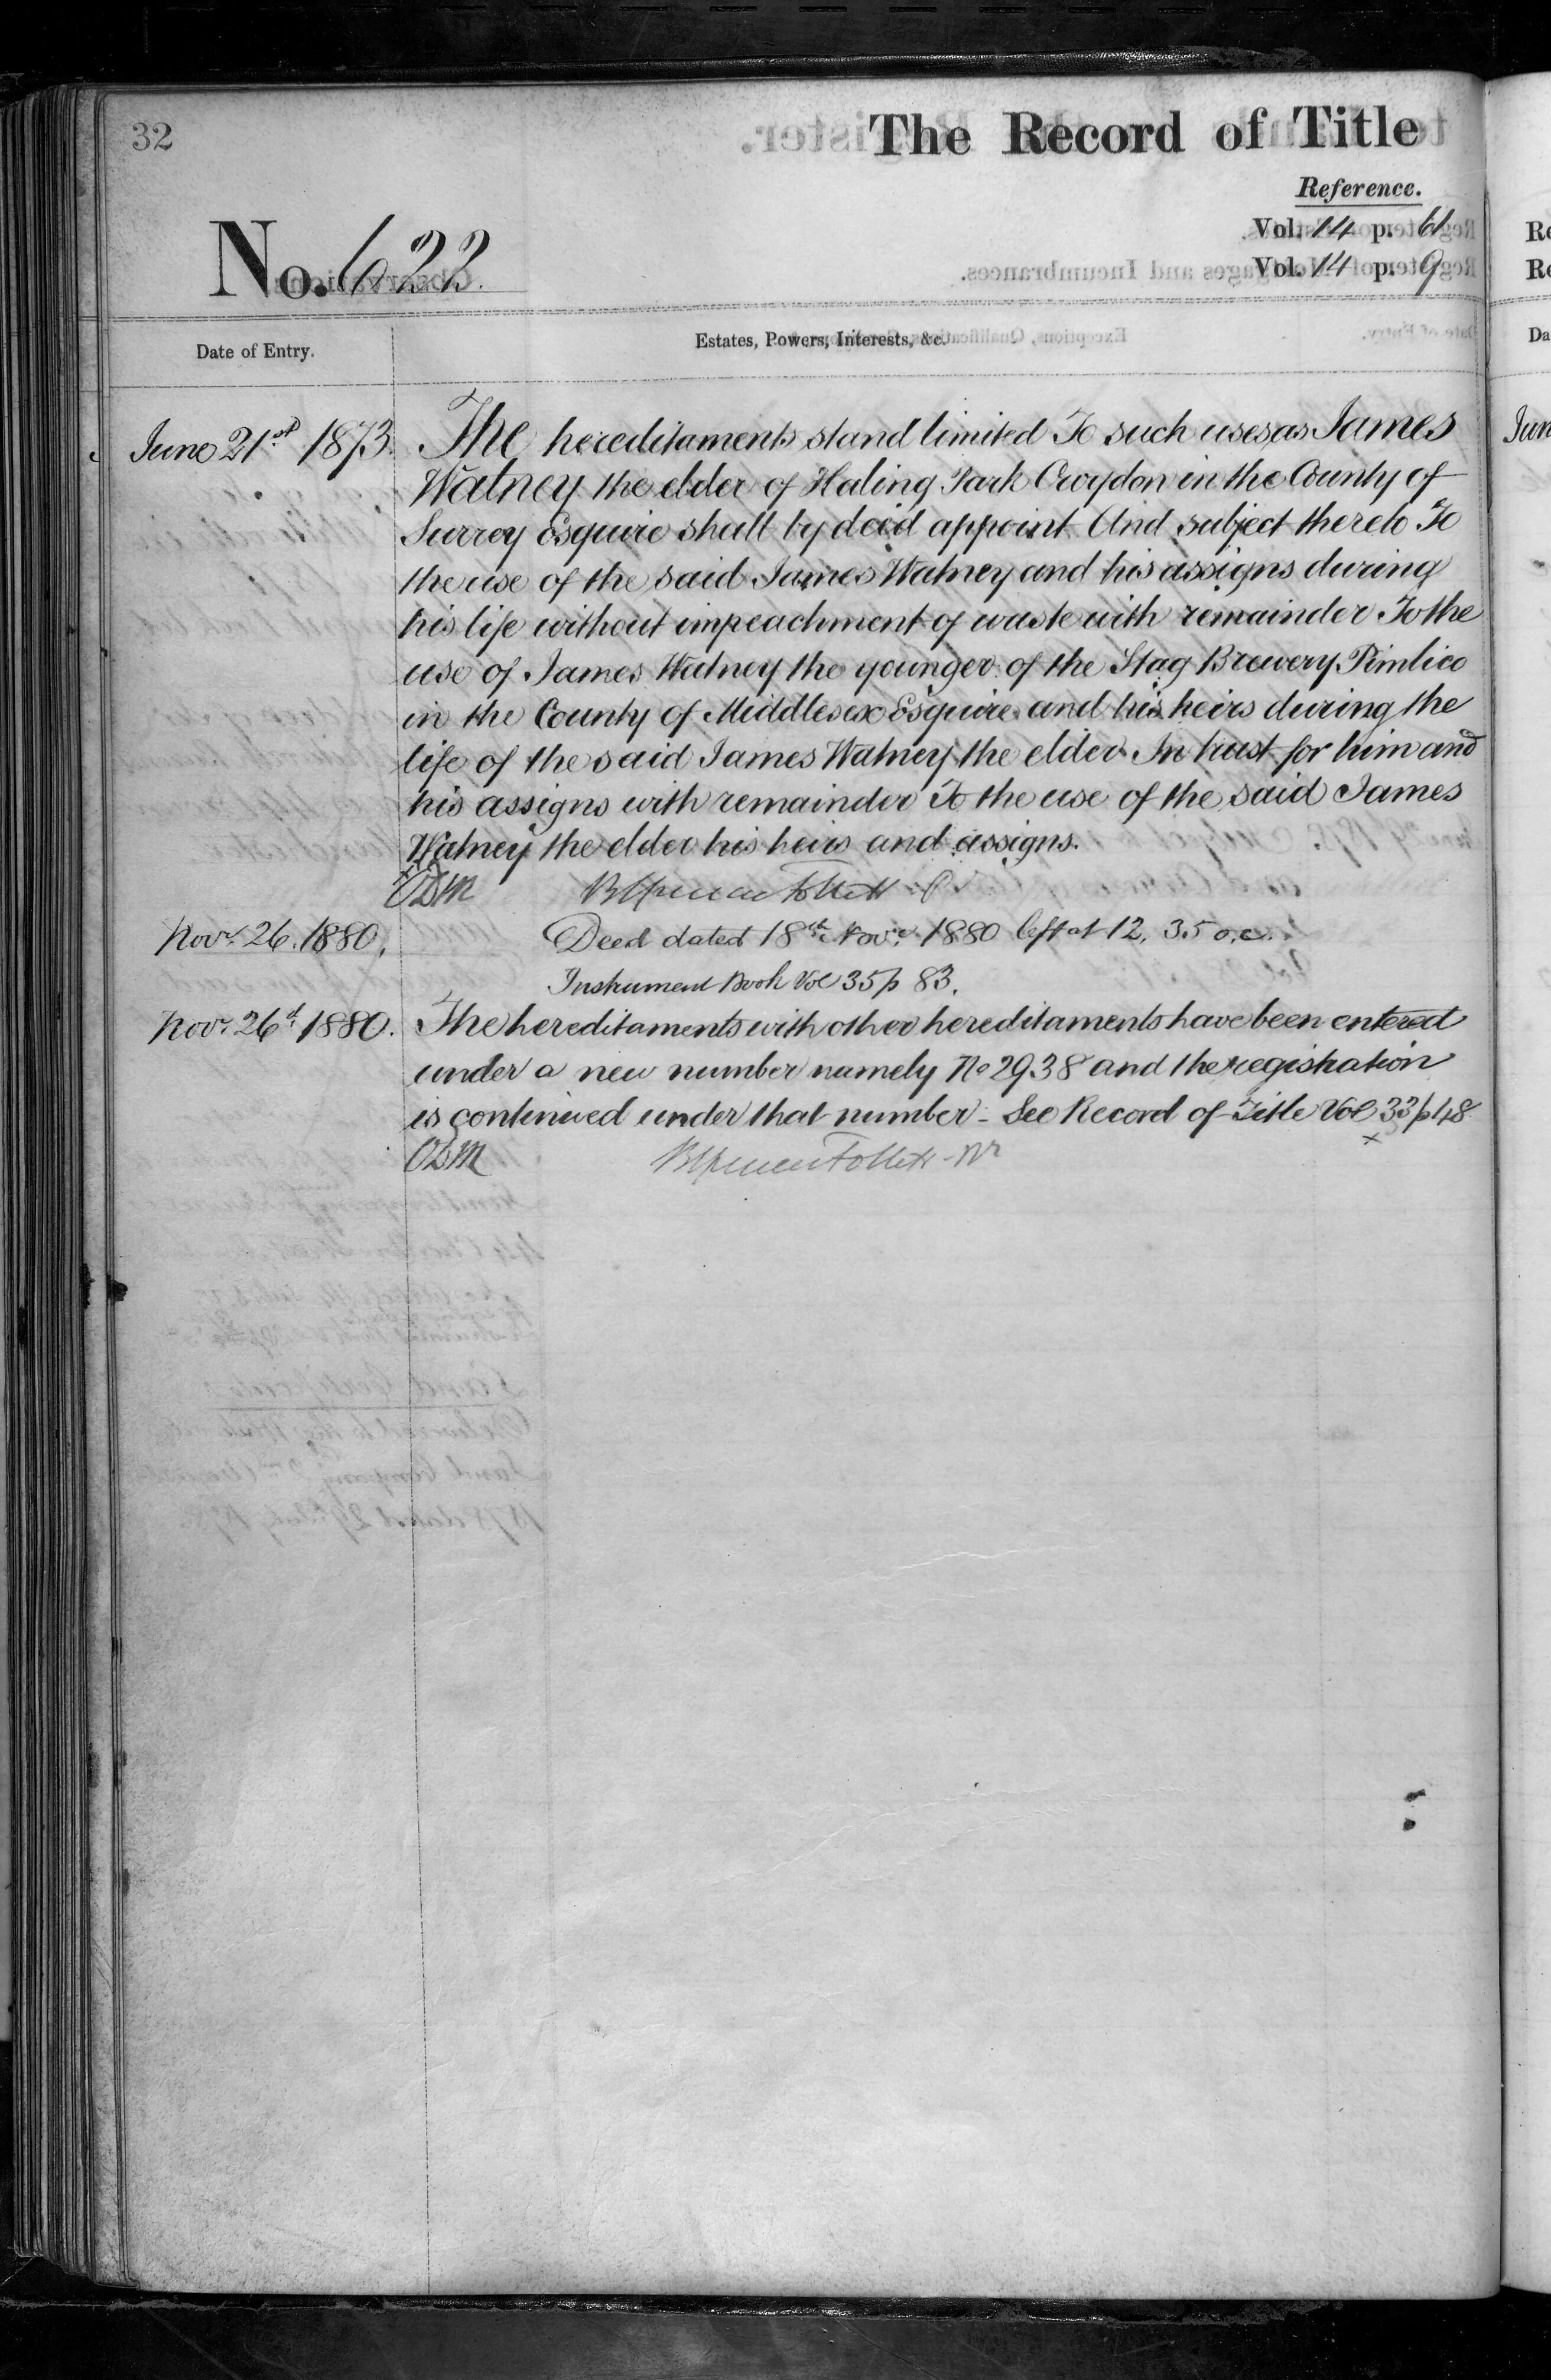 32
The Record of Title
Reference.
Vol. 14 p. 61
No. 622.
Vol. 14 p. 9
Date of Entry.
Estates, Powers, Interests, &c.
June 21st 1873. The hereditaments stand limited To such uses as James
Watney the elder of Haling Park Croydon in the County of
Surrey Esquire shall by deed appoint And subject thereto To
the use of the said James Watney and his assigns during
his life without impeachment of waste with remainder To the
use of James Watney the younger of the Stag Brewery Pimlico
in the County of Middlesex Esquire and his heirs during the
life of the said James Watney the elder In trust for him and
his assigns with remainder To the use of the said James
Watney the elder his heirs and assigns.
Follett
Novr. 26. 1880. Deed dated 18th Novr. 1880 left at 12. 35 o.c.
Instrument Book Vol 35 p 83.
Novr. 26th 1880. The hereditaments with other hereditaments have been entered
under a new number namely No 2938 and the registration
is continued under that number - See Record of Title Vol 33 p 48
Follett